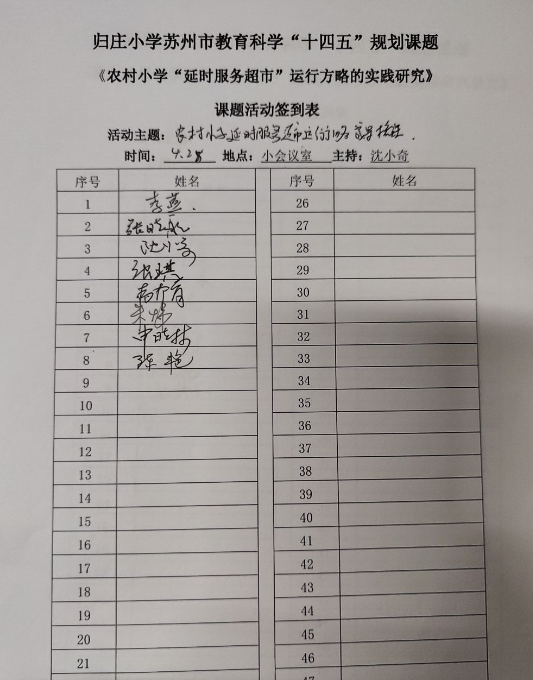 归庄小学苏州市教育科学“十四五”规划课题
《农村小学“延时服务超市”运行方略的实践研究》
课题活动签到表
活动主题：农村小学延时服务超市运行
时间：4.28 地点：小会议室 主持：沈小奇
序号 姓名 序号 姓名
1 李燕 26
2 27
3 沈小奇 28
4 张琪 29
5 30
6 31
7 32
8 陈艳 33
9 34
10 35
11 36
12 37
13 38
14 39
15 40
16 41
17 42
18 43
19 44
20 45
21 46
47